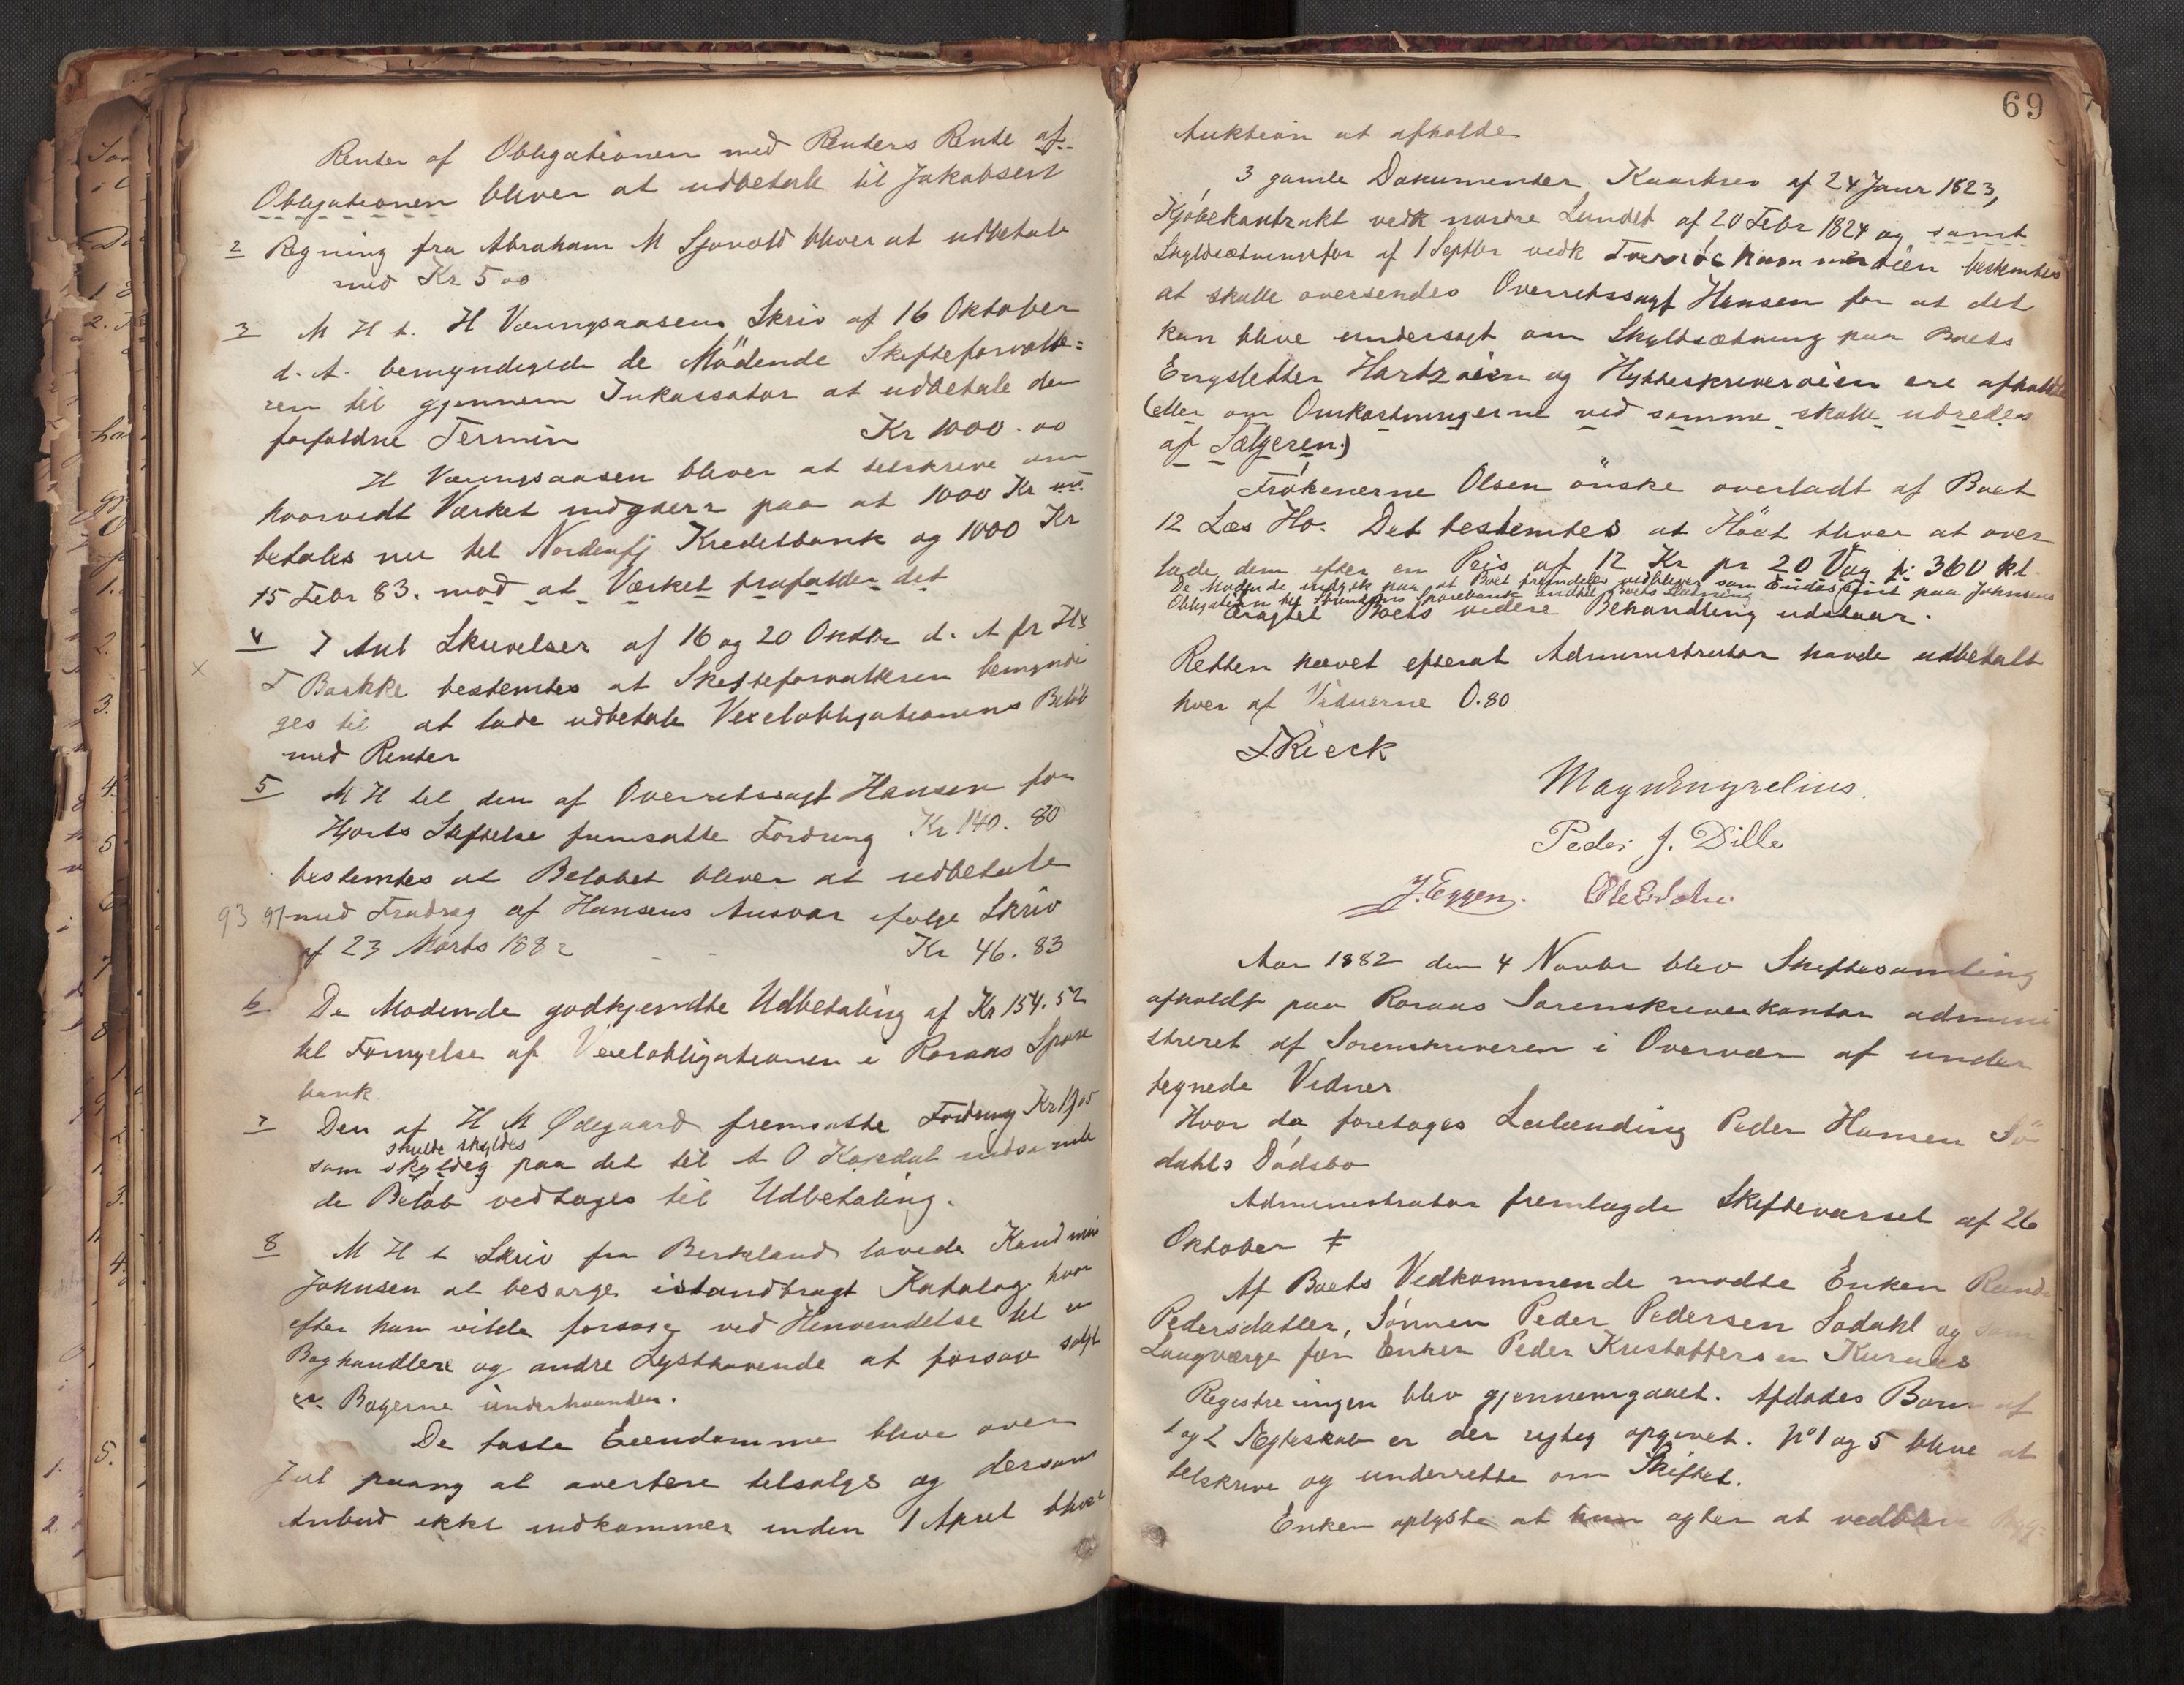 Renter af Obligationen med Renters Rente af
Obligationen bliver at udbetale til Jakobsen
2 Regning fra Abraham M Sjovold bliver at udbetale
med Kr 5 00
3 M H t. H Vaungsaasens Skriv af 16 Oktober
d. A. bemyndigede de Mödende Skifteforvalte=
ren til gjennem Inkassator at udbetale den
forfaldne Termin Kr 1000.00
H Vaungsaasen bliver at tilskrive om
hvorvidt Værket indgaar paa at 1000 Kr
betales nu til Nordenfj Kreditbank og 1000 Kr
15 Febr 83. mod at Værket frafalder det
4 I Anl Skrivelser af 16 og 20 Oktbr d. A fr
Bakke bestemtes at Skifteforvalteren bemyndi
ges til at lade udbetale Vexelobligationens Beløb
med Renter
5 M H til den af Overretssagf Hansen for
Hjorts Stiftelse fremsatte Fordring Kr 140. 80
bestemtes at Beløbet bliver at udbetale
93 97 med Fradrag af Hansens Ansvar ifølge Skriv
af 23 Marts 1882 - - Kr 46. 83
6 De Mødende godkjendte Udbetaling af Kr 154.52
til Fornyelse af Vexelobligationen i Røraas Spare
bank
7 Den af H M Ødegaard fremsatte Fordring Kr
skulde skyldes
som skyldig paa det til A O Kojedal indsende
de Beløb vedtages til Udbetaling.
8 M H t Skriv fra Berkeland lovede Kand min
Johnsen at besørge istandbragt Katalog hvor
efter han vilde forsøge ved Henvendelse til
Boghandlere og andre Lysthavende at forsøge solgt
Bøgerne underhaanden.
De faste Eiendomme blive over
Jul paany at avertere tilsalgs og dersom
Anbud ikke indkommer inden 1 April bliver
69
Auktion at afholde
3 gamle Dokumenter Kaarbrev af 24 Janr 1823,
Kjöbekontrakt vedk nordre Lundet af 20 Febr 1824 og samt
Skyldsætningsfor af 1 Septbr vedk bestemtes
at skulle oversendes Overretssagf Hansen for at det
kan blive undersøgt om Skyldsætning paa Boets
Engsletter Hartzøien og Hytteskriverøien ere afholdte
(eller om Omkostningerne ved samme skulle udredes
af Sælgeren.)
Frøkenerne Olsen önske overladt af Boet
12 Læs Hø. Det bestemtes at Höet bliver at over
lade dem efter en Pris af 12 Kr pr 20 Vog p: 360 kl.
De Mødende indgik paa at Boet fremdeles vedbliver som Endossent paa Johnsens
Obligation til Trondhjems Sparebank indtil Boets Slutning
Boets videre Behandling udstaar.
Retten hævet efterat Administrator havde udbetalt
hver af Vidnerne 0.80
Rieck
Magn Engzelius.
Peder J. Dille
J. Eggen.
Aar 1882 den 4 Novbr blev Skiftesamling
afholdt paa Røraas Sorenskriverkontor admini
streret af Sorenskriveren i Overvær af under
tegnede Vidner
Hvor da foretoges Leilænding Peder Hansen Sö
dahls Dødsbo
Administrator fremlagde Skiftevarsel af 26
Oktober ‡
Af Boets Vedkommende mødte Enken Rand
Pedersdatter, Sønnen Peder Pedersen Sødahl og som
Laugværge for Enken Peder Kristoffersen Kuraas
Registreringen blev gjennemgaaet. Afdødes Børn af
1 og 2 Ægteskab er der rigtig opgivet. No 1 og 5 blive at
tilskrive og underrette om Skiftet.
Enken oplyste at hun agter at vedblive